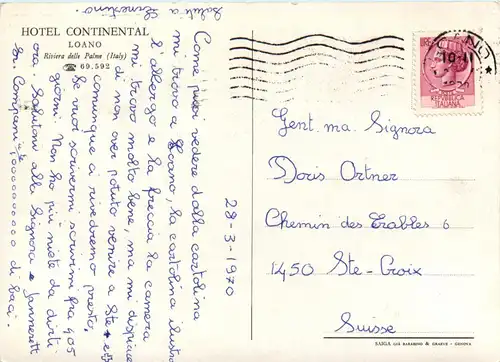 HOTEL CONTINENTAL
LOANO
Riviera delle Palme (Italy)
☎ 69.592
28-3-1970
Come puoi vedere dalla cartolina
mi trovo a Loano, la cartolina illustra
l'albergo e la freccia la camera
mi trovo molto bene, ma mi dispiace
di non aver potuto venire a Ste-+
comunque ci rivedremo presto.
Se vuoi scrivermi scrivimi fra 4o5
giorni. Non ho più niete da dirti
ora. Salutoni alla Signora e
Sri. Company di baci.
Saluti a
Ernestina.
POSTE
REPUBBLICA
ITALIANA
10-11
Gent.ma. Signora
Doris Ortner
Chemin des Erables 6
1450 Ste-Croix
Suisse
SAIGA già BARABINO & GRAEVE - GENOVA